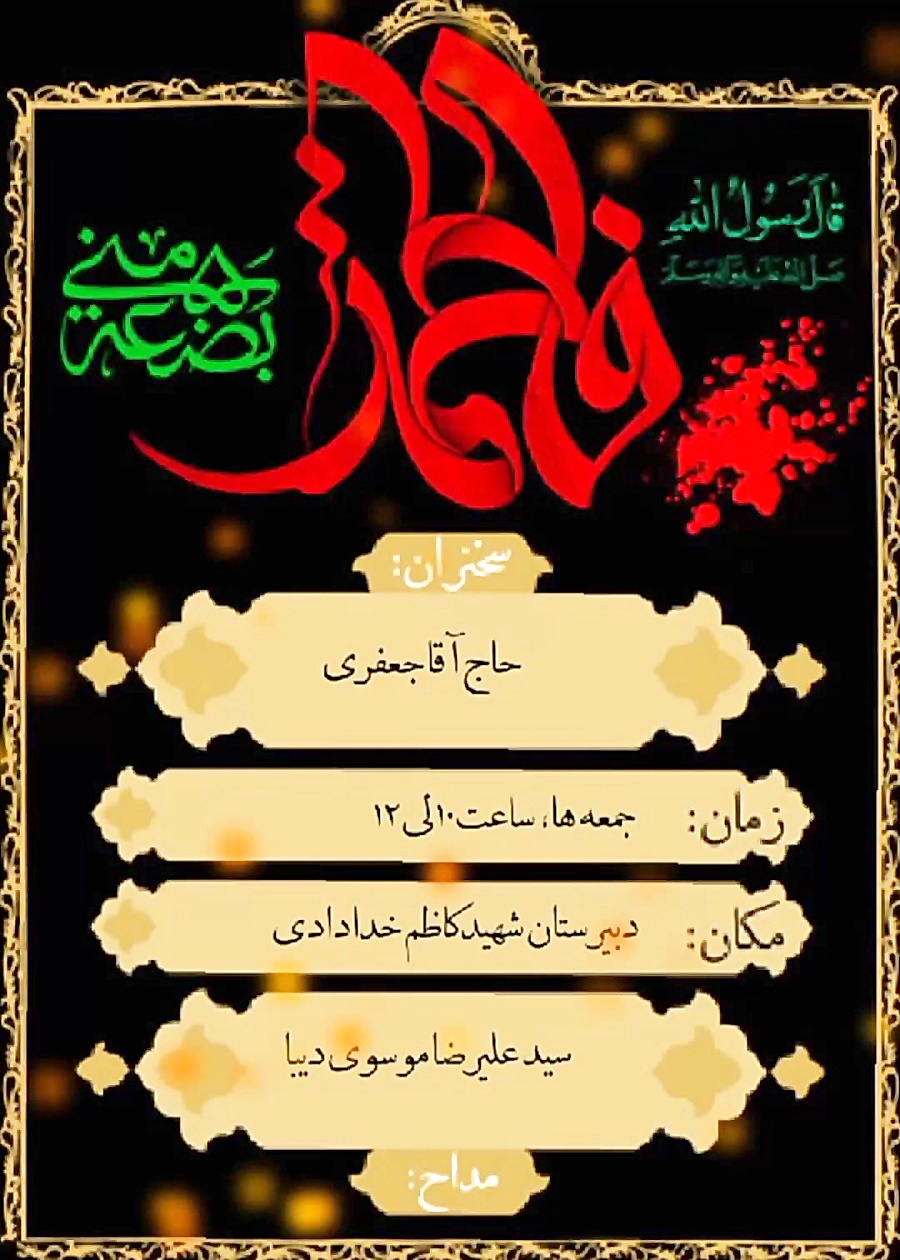 قالَ رَسُولُ اللهِ
صلی الله علیه و آله و سلم
فاطمة
بضعة منی
سخنران:
حاج آقا جعفری
زمان: جمعه ها، ساعت ۱۰ الی ۱۲
مکان: دبیرستان شهید کاظم خدادادی
سید علیرضا موسوی دیبا
مداح: